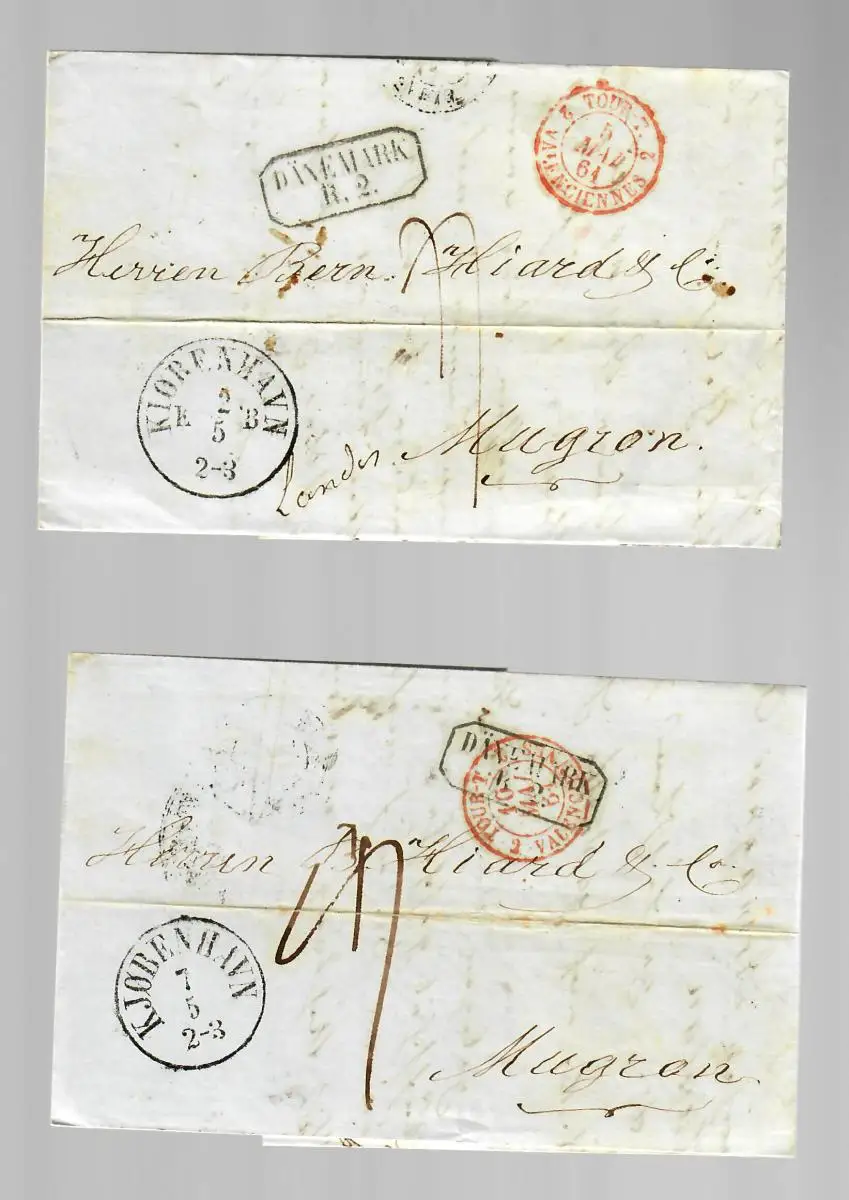 DÄNEMARK
R. 2.
2 TOUR-T.
5
MAI
61
VALENCIENNES 2
Herren Bern. Hiard & Co.
KIOBENHAVN
K 2 B
5
2-3
Landes. Mugron.
DÄNEMARK
R 2
TOUR-T
10
MAI
2 VALENC
Herren B. Hiard & Co.
KJØBENHAVN
7
5
2-3
Mugron.